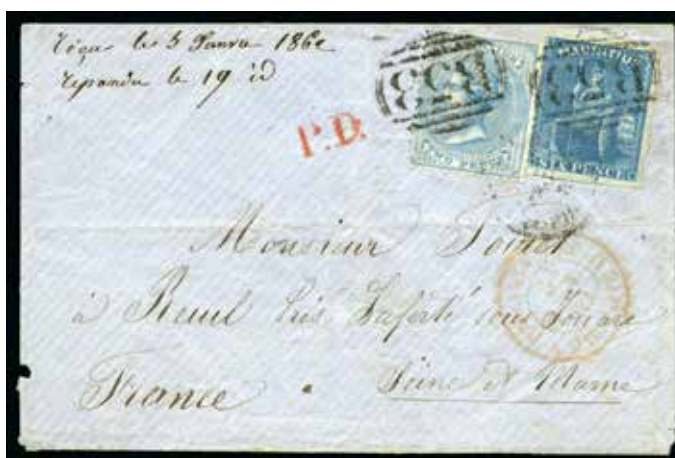 Réçu le 5 Janvier 186
Répondu le 19 id
B53
B53
MAURITIUS
TWO PENCE
SIX PENCE
P.D.
Monsieur
à Reuil près Laferté sous Jouare
France
Seine et Marne